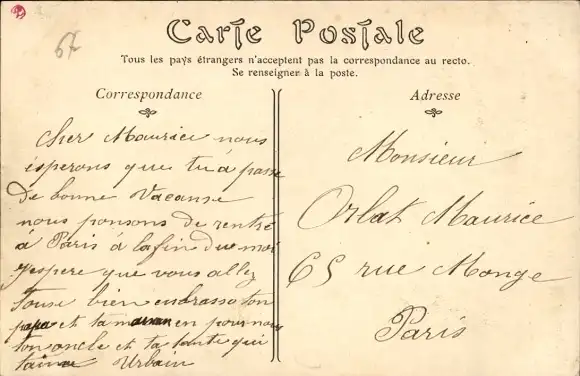 67
Carte Postale
Tous les pays étrangers n'acceptent pas la correspondance au recto.
Se renseigner à la poste.
Correspondance
Cher Maurice nous
ésperons que tu a passe
de bonne Vacanse
nous ponsons de rentré
á Paris á la fin due moi
j'espere que vous allez
touse bien embrasse ton
papa et ta maman en pour nous
ton oncle et ta tante qui
t'aime Urbain
Adresse
Monsieur
Orlat Maurice
65 rue Monge
Paris